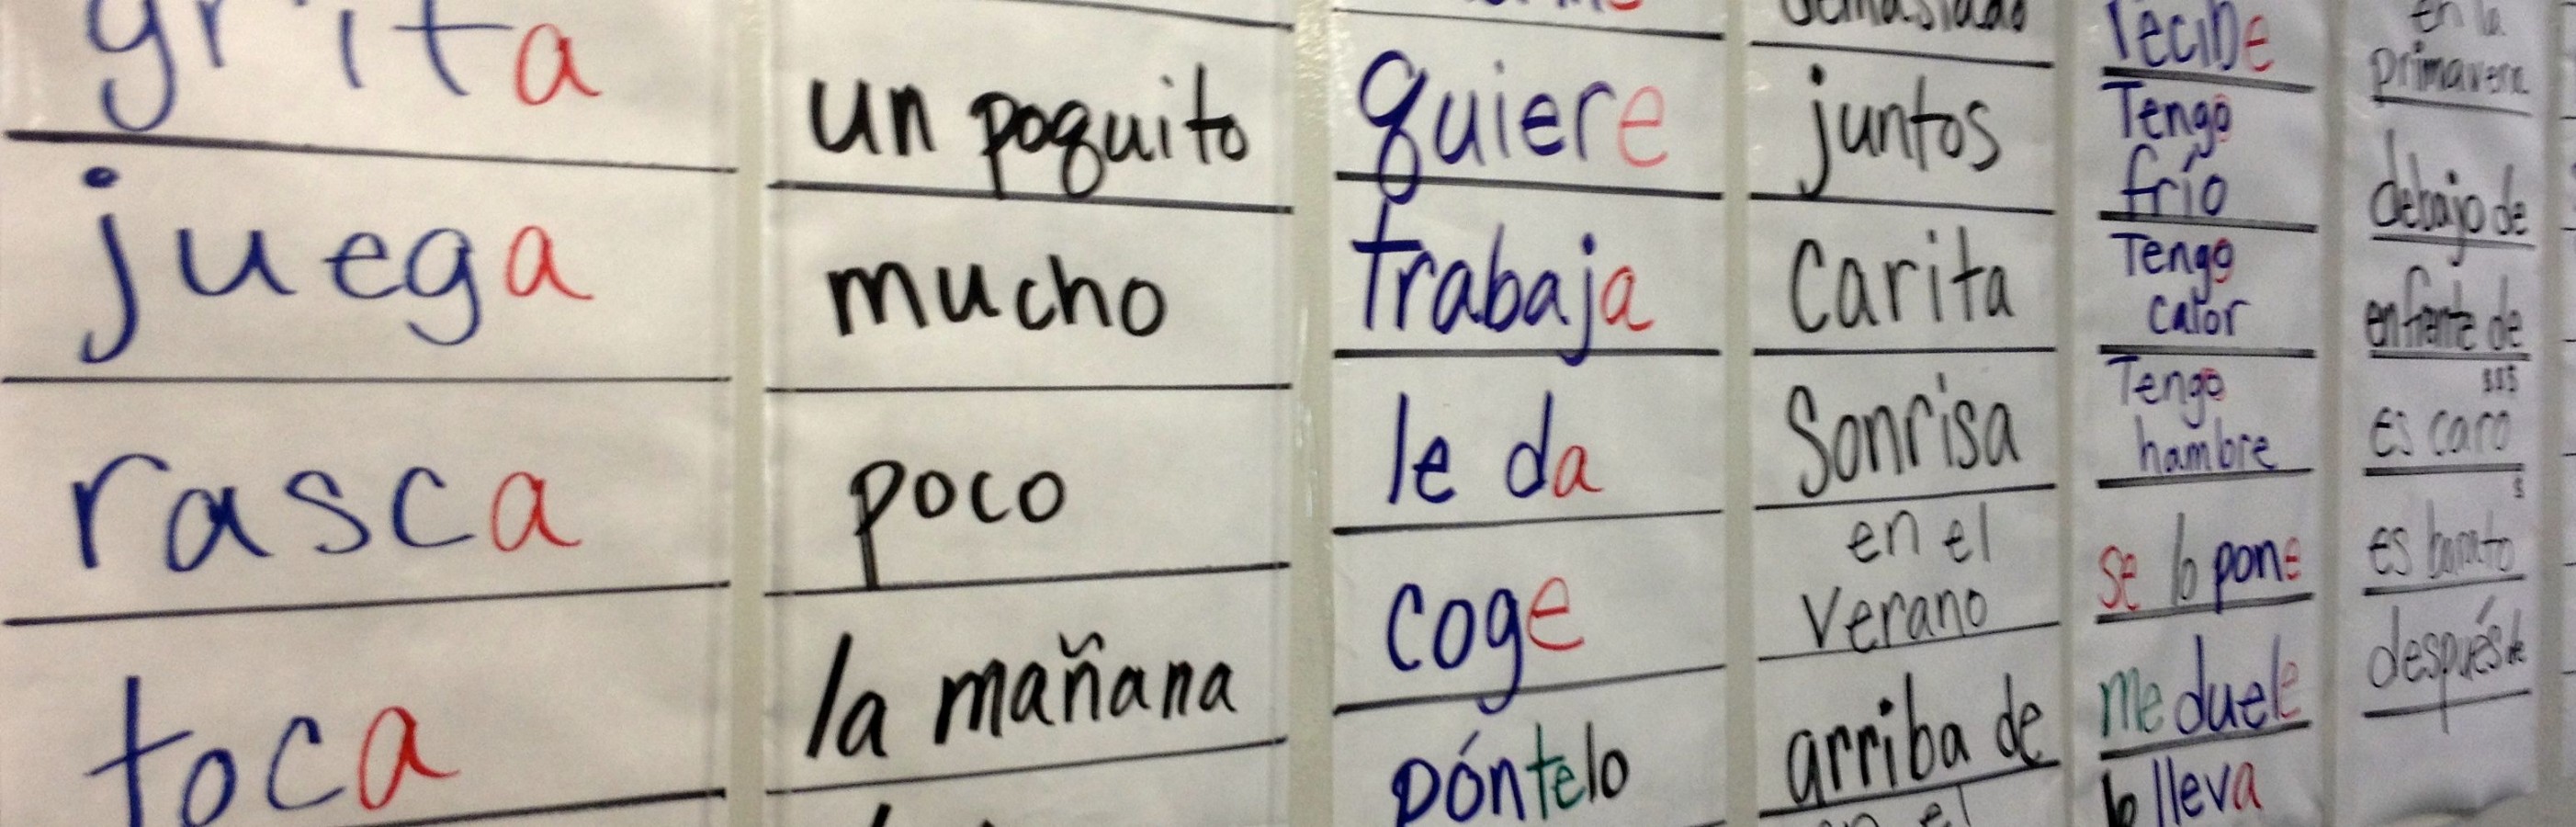 grita
juega
rasca
toca
un poquito
mucho
poco
la mañana
quiere
trabaja
le da
coge
póntelo
demasiado
juntos
Carita
Sonrisa
en el
verano
arriba de
en el
recibe
Tengo
frío
Tengo
calor
Tengo
hambre
se lo pone
me duele
lo lleva
en la
primavera
debajo de
enfrente de
$$$
es caro
$
es barato
después de